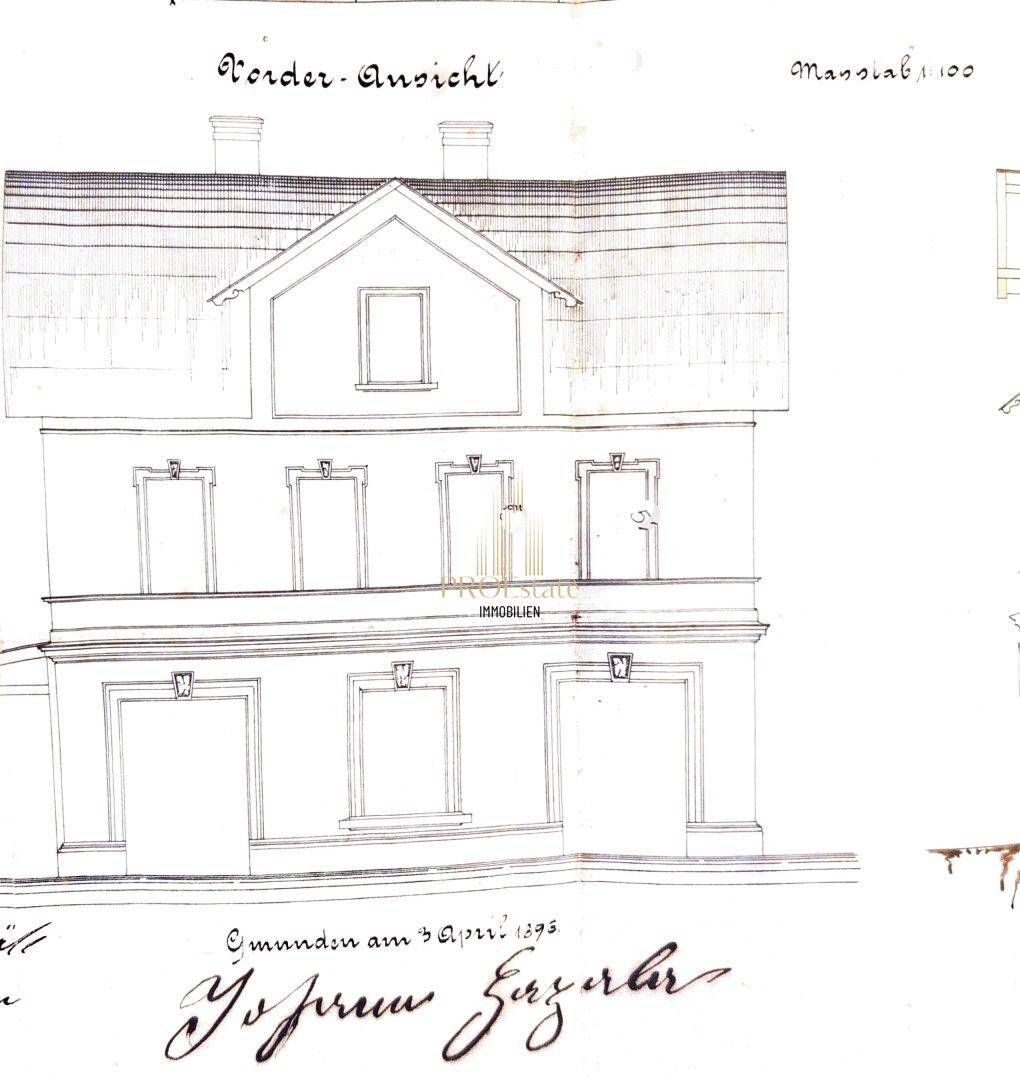 Vorder-Ansicht
Masstab 1:100
PROEstate
IMMOBILIEN
Gmunden am 3 April 189
Johann